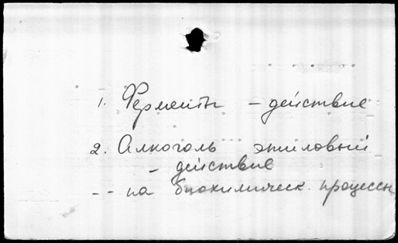 1. Ферменты - действие
2. Алкоголь этиловый
- действие
-- на биохимическ. процессы